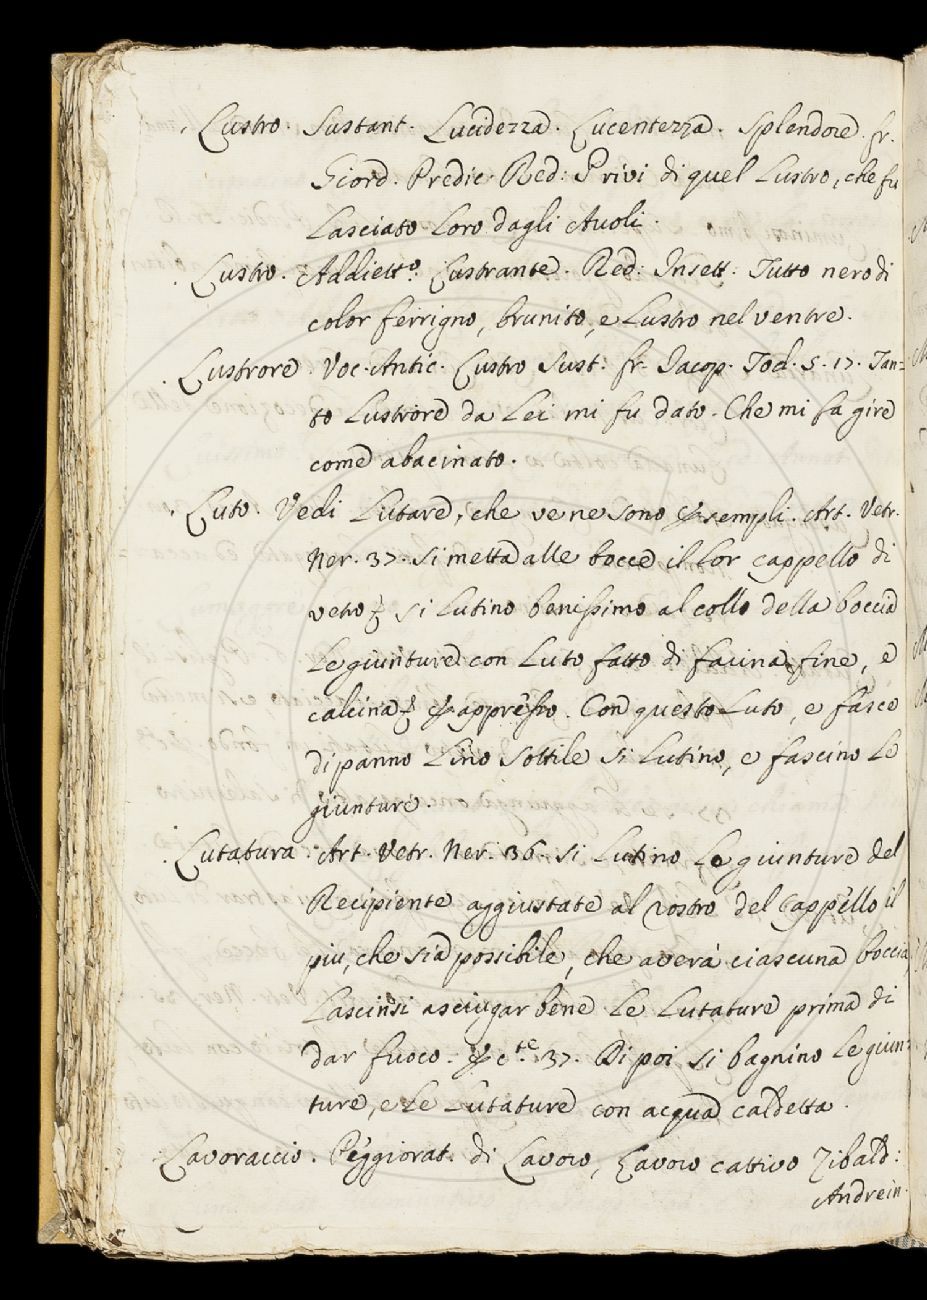 Lustro. Sustant. Lucidezza. Lucentezza. Splendore. fr.
Giord. Predic. Red: Privi di quel Lustro, che fu
Lasciato Loro dagli Avoli.
Lustro. Addietto: Lustrante. Red: Insett: Tutto nero di
color ferrigno, brunito, e Lustro nel ventre.
Lustrore. Voc. Antic. Lustro Sust: fr. Jacop. Tod. 5. 17. Tan=
to Lustrore da Lei mi fu dato. Che mi fa gire
come abacinato.
Luto. Vedi Lutare, che ve ne sono Esempli. Art. Vetr.
Ner. 37. Si metta alle bocce il Lor cappello di
vetro, Si Lutino benissimo al collo della boccia
Le giunture con Luto fatto di farina fine, e
calcina, E appresso. Con questo Luto, e fasce
di panno Lino Sottile Si Lutino, e fascino Le
giunture.
Lutatura. Art. Vetr. Ner. 36. Si Lutino Le giunture del
Recipiente aggiustate al rostro del Cappello il
piu, che sia possibile, che averà ciascuna boccia
Lascinsi asciugar bene Le Lutature prima di
dar fuoco. E cte 37. Di poi si bagnino Le giun=
ture, e Le Lutature con acqua caldetta.
Lavoraccio. Peggiorat. di Lavoro, Lavoro cattivo Zibald:
Andrein.